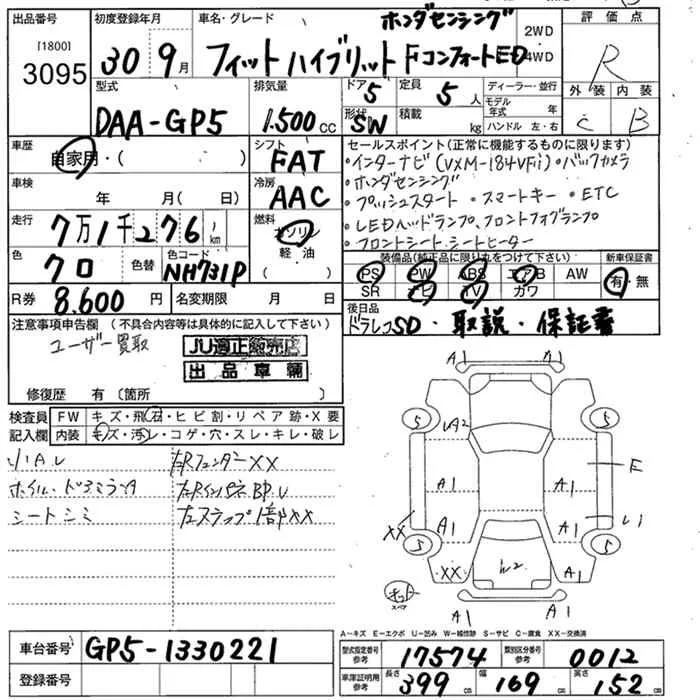 出品番号 初度登録年月 車名・グレード ホンダセンシング 2WD 評価点
[1800]
3095 30 9月 フィット ハイブリット Fコンフォート ED 4WD R
型式 排気量 ドア 5 定員 5人 ディーラー・並行 外装 内装
DAA-GP5 1.500cc 形状 SW 積載 kg モデル年式 年 C B
ハンドル 左・右
車歴 自家用・( ) シフト FAT セールスポイント(正常に機能するものに限ります)
・インターナビ(VXM-184VFi)・バックカメラ
車検 年 月( 日) 冷房 AAC ・ホンダセンシング
・プッシュスタート ・スマートキー ・ETC
走行 7万1千276km 燃料 ガソリン 軽油 ・LEDヘッドランプ、フロントフォグランプ
・フロントシートヒーター
色 クロ 色替 色コード NH731P 装備品(純正品に限り丸をつけて下さい) 新車保証書
PS PW ABS エアB AW 有・無
R券 8.600円 名変期限 月 日 SR ナビ TV カワ
後日品 ドラレコSD・取説・保証書
注意事項申告欄 (不具合内容等は具体的に記入して下さい)
ユーザー買取 JU適正販売店
出品車輌
修復歴 有(箇所 )
検査員記入欄 FW キズ・飛石・ヒビ割・リペア跡・X要
内装 キズ・汚レ・コゲ・穴・スレ・キレ・破レ
小A.U 右Rフェンダー XX
ホイル・ドアミラーA 左RインパネBP.U
シートシミ 左ステップ1部XX
A1
A1 A1
5 UA2 5
E
A1 A1 A1
XX A1 A1 U1
5 5
XX W2 A1
キット
スペア
A1 A1
A-キズ E-エクボ U-凹み W-補修跡 S-サビ C-腐食 XX-交換済
車台番号 GP5-1330221 型式指定番号 参考 17574 類別区分番号 参考 0012
登録番号 車庫証明用 参考 長さ 399cm 幅 169cm 高さ 152cm